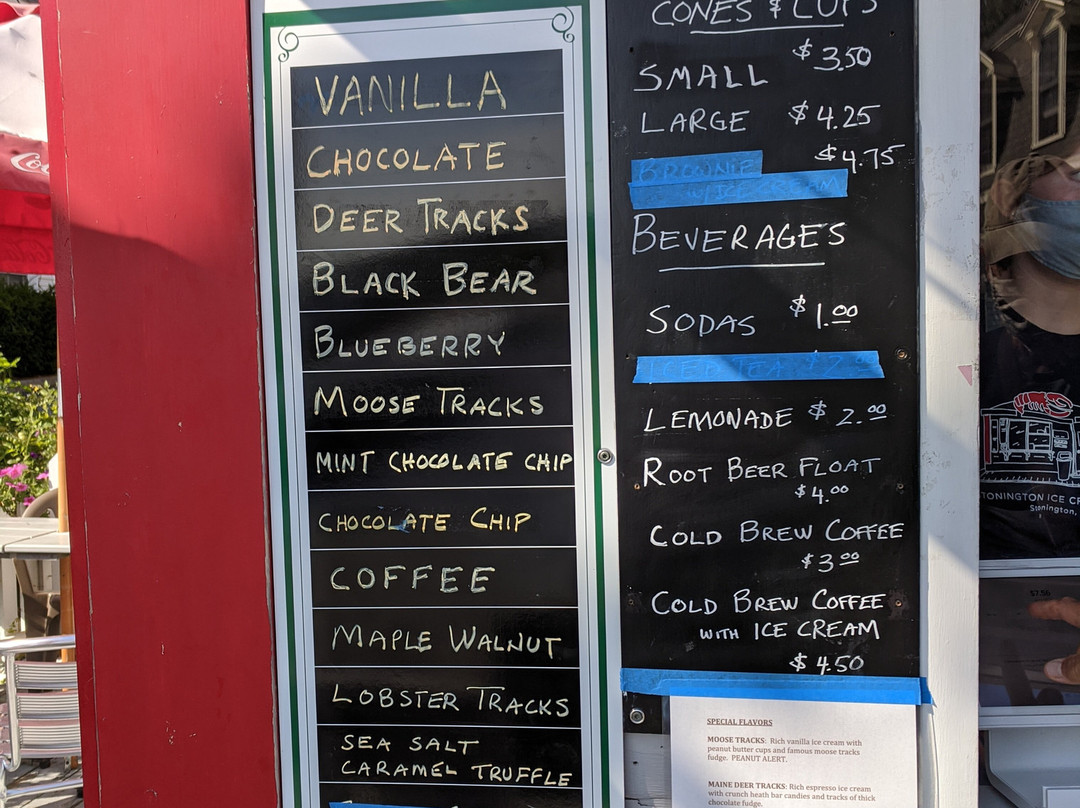 VANILLA
CHOCOLATE
DEER TRACKS
BLACK BEAR
BLUEBERRY
MOOSE TRACKS
MINT CHOCOLATE CHIP
CHOCOLATE CHIP
COFFEE
MAPLE WALNUT
LOBSTER TRACKS
SEA SALT
CARAMEL TRUFFLE
CONES & CUPS
SMALL $3.50
LARGE $4.25
BROWNIE $4.75
W/ICE CREAM
BEVERAGES
SODAS $1.00
ICED TEA $2.00
LEMONADE $2.00
ROOT BEER FLOAT
$4.00
COLD BREW COFFEE
$3.00
COLD BREW COFFEE
WITH ICE CREAM
$4.50
SPECIAL FLAVORS
MOOSE TRACKS: Rich vanilla ice cream with
peanut butter cups and famous moose tracks
fudge. PEANUT ALERT.
MAINE DEER TRACKS: Rich espresso ice cream
with crunch heath bar candies and tracks of thick
chocolate fudge.
TONINGTON ICE CR
Stonington,
Co